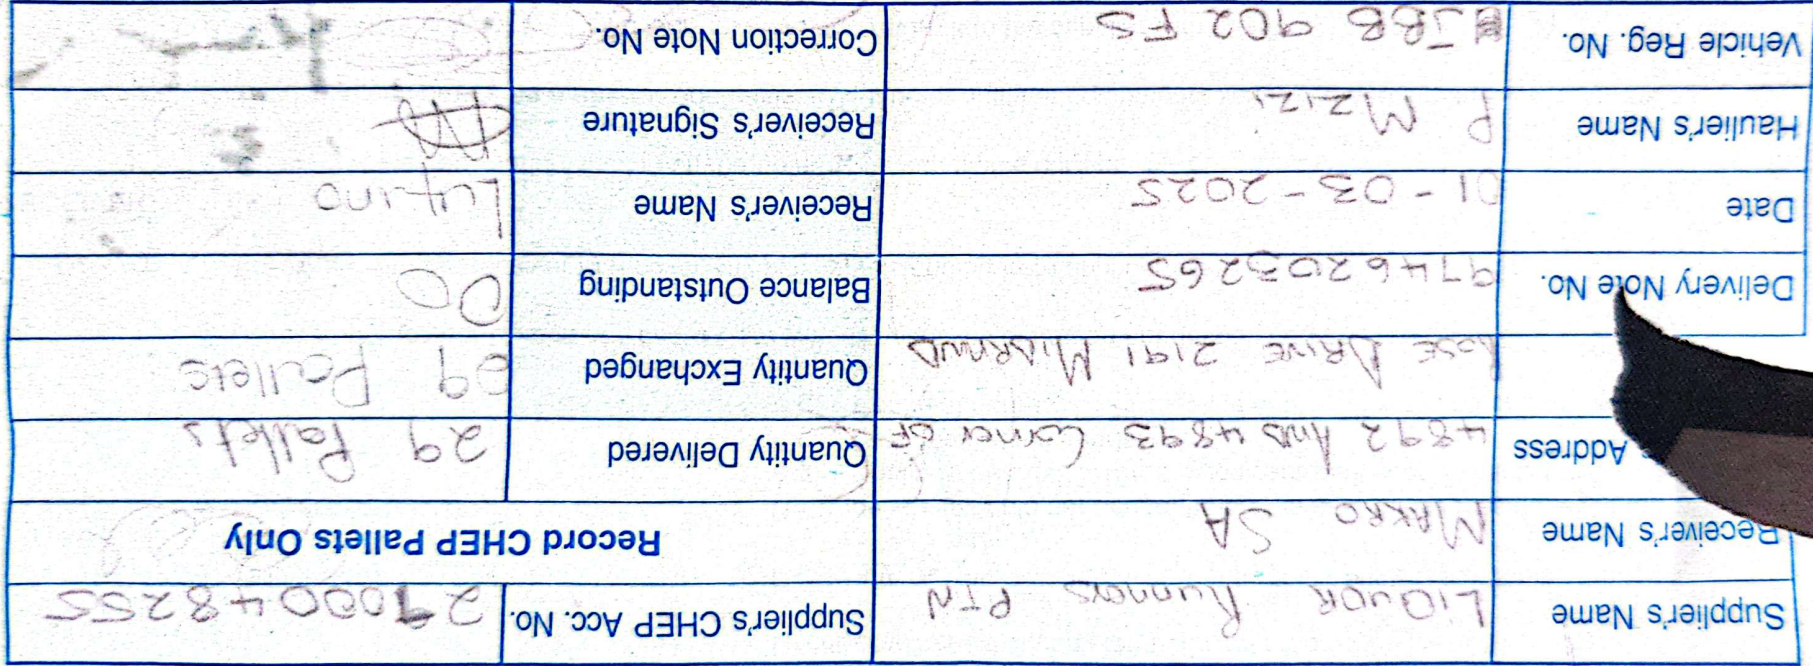 Supplier's Name LIQUOR Runners PTN Supplier's CHEP Acc. No. 2900048255
Receiver's Name MAKRO SA Record CHEP Pallets Only
Address 4892 AND 4893 Corner OF Quantity Delivered 29 Pallets
DRIVE 2191 Quantity Exchanged 29 Pallets
Delivery Note No. 9746203265 Balance Outstanding 00
Date 01-03-2025 Receiver's Name
Haulier's Name P MZIZI Receiver's Signature
Vehicle Reg. No. JBB 902 FS Correction Note No.